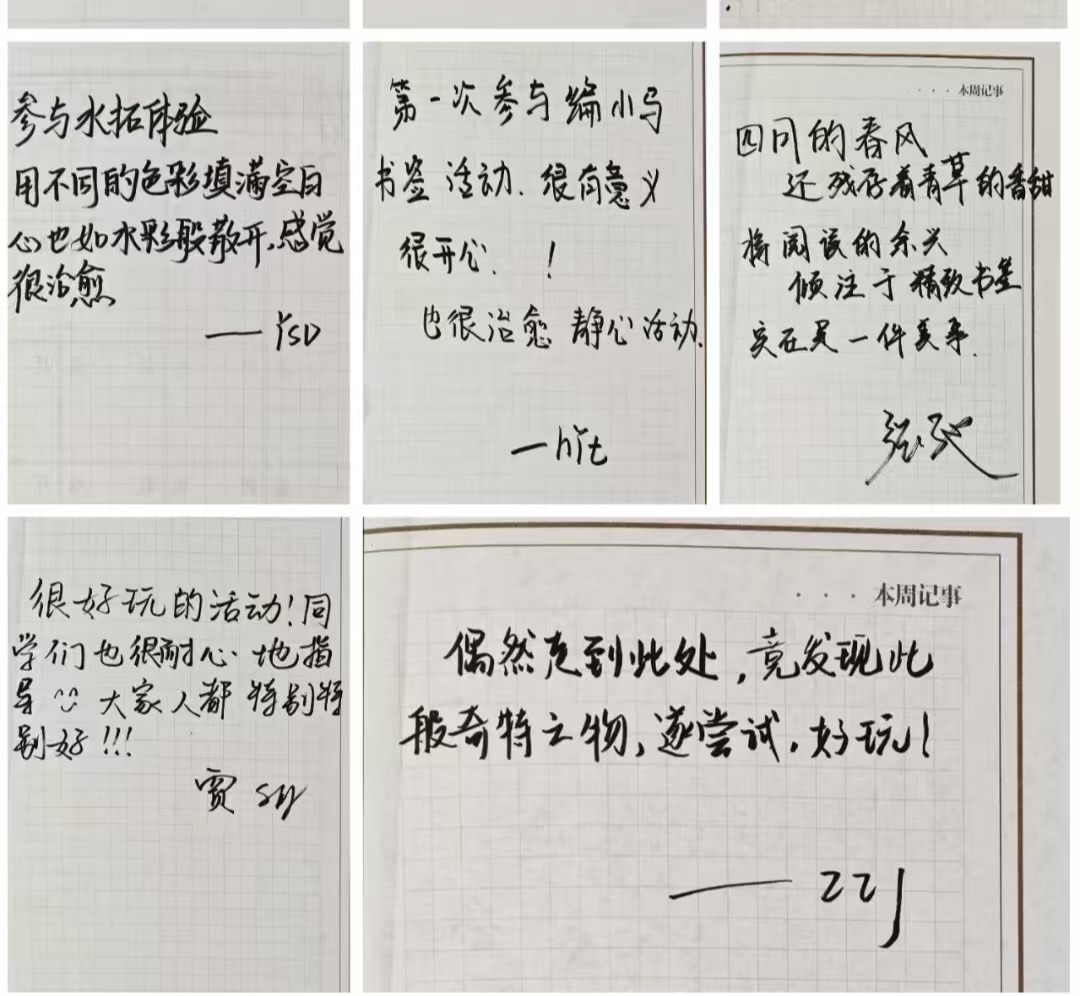 参与水拓体验
用不同的色彩填满空白
心也如水彩般散开,感觉
很治愈
——YSD
第一次参与编小马
书签活动.很有意义
很开心. !
也很治愈 静心活动.
—hYt
····本周记事
四月的春风
还残存着青草的香甜
将阅读的余兴
倾注于精致书签
实在是一件美事.
· · · ·本周记事
很好玩的活动!同
学们也很耐心地指
导 大家人都特别特
别好!!!
贾
偶然走到此处,竟发现此
般奇特之物,遂尝试,好玩!
——ZZJ